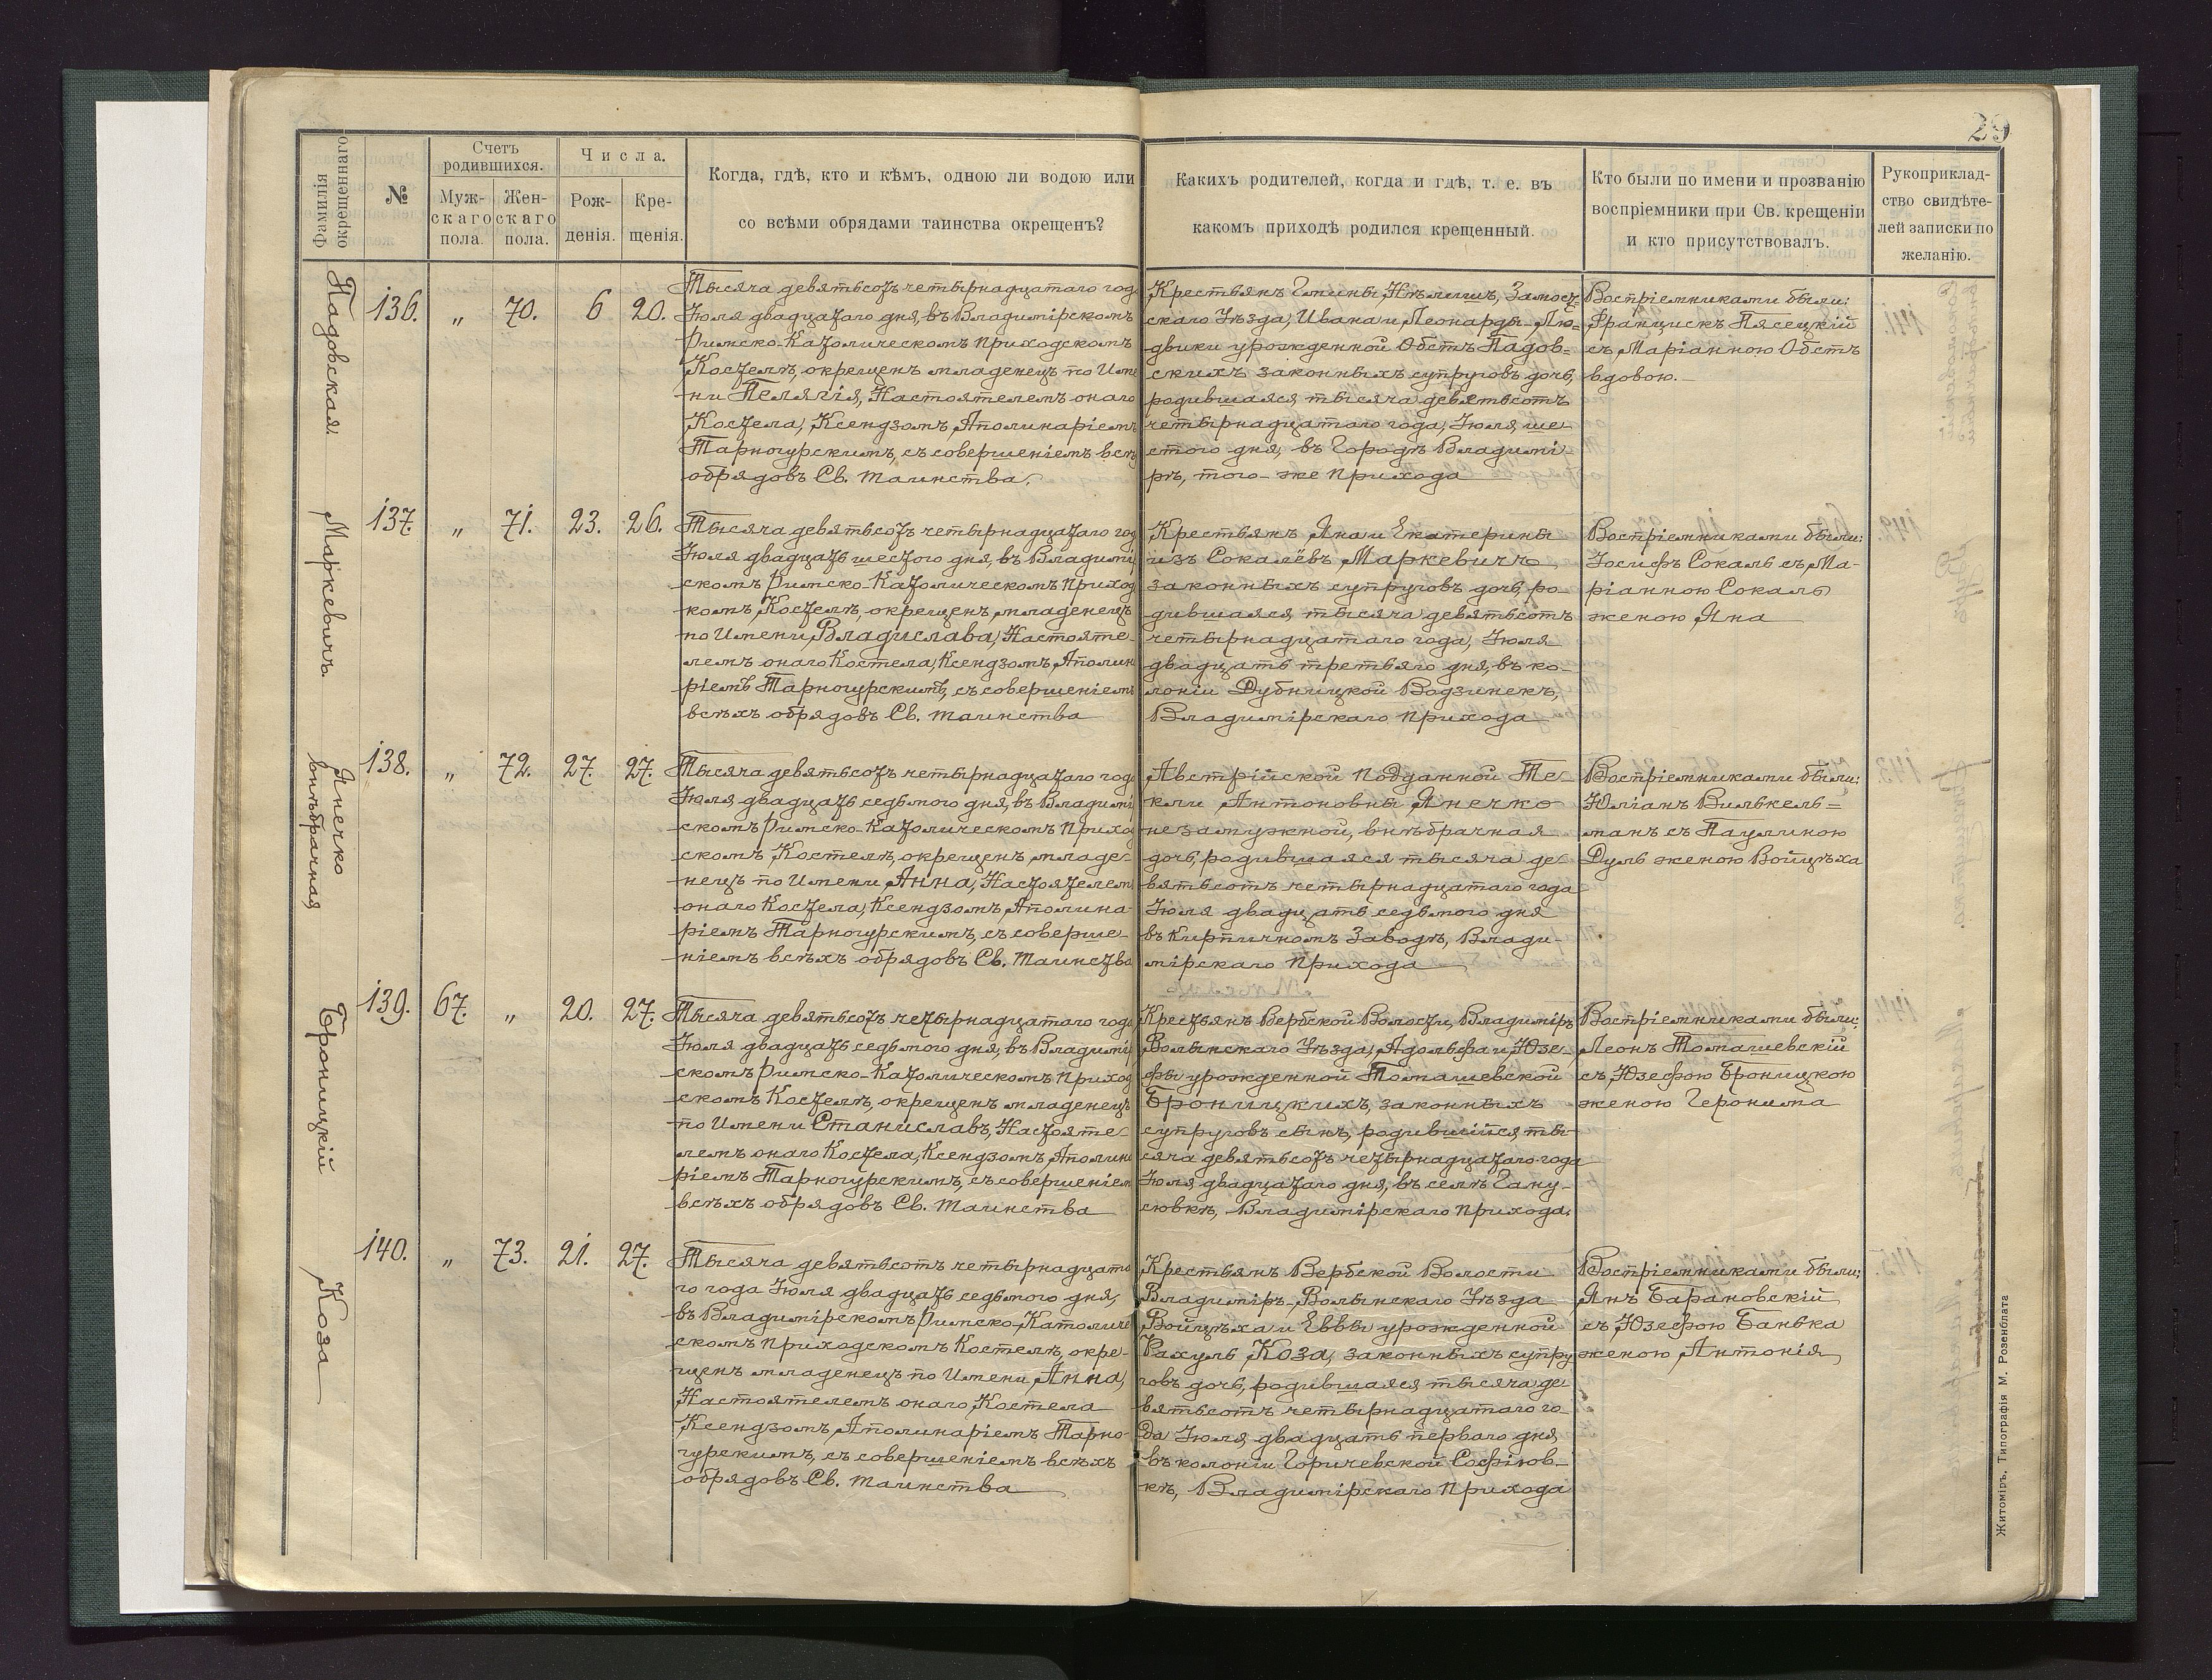 29
Фамилія
окрещеннаго
№
Счетъ
родившихся.
Муж-
скаго
пола.
Жен-
скаго
пола.
Числа.
Рож-
денія.
Кре-
щенія.
Когда, гдѣ, кто и кѣмъ, одною ли водою или
со всѣми обрядами таинства окрещенъ?
Какихъ родителей, когда и гдѣ, т. е. въ
какомъ приходѣ родился крещенный.
Кто были по имени и прозванію
воспріемники при Св. крещеніи
и кто присутствовалъ.
Рукоприклад-
ство свидѣте-
лей записки по
желанію.
Падовская
136. „ 70. 6 20.
Тысяча девятьсотъ четырнадцатаго год
Іюля двадцатаго дня, въ Владимірскомъ
Римско-Католическомъ приходскомъ
Костелѣ, окрещенъ младенецъ по Име
ни Пелягія, Настоятелемъ онаго
Костела, Ксендзомъ Аполинаріемъ
Тарногурскимъ, съ совершеніемъ всѣхъ
обрядовъ Св. таинства.
Крестьянъ Гмины Нѣлишъ, Замост-
скаго Уѣзда, Ивана и Леонарды-Лю=
двики урожденной Обстъ Падов=
скихъ законныхъ супруговъ дочь,
родившаяся тысяча девятьсотъ
четырнадцатаго года, Іюля ше
стого дня, въ Городѣ Владимі
рѣ, того-же прихода
Воспріемниками были:
Францискъ Пясецкій
съ Маріанною Обстъ
вдовою.
Маркевичъ
137. „ 71. 23. 26.
Тысяча девятьсотъ четырнадцатаго год
Іюля двадцать шестого дня, въ Владимі
скомъ Римско-Католическомъ приход
комъ, Костелѣ, окрещенъ, младенецъ
по Имени, Владислава, Настояте-
лемъ онаго Костела, Ксендзомъ, Аполин
ріемъ Тарногурскимъ, съ совершеніемъ
всѣхъ обрядовъ Св. таинства
Крестьянъ Яна и Екатерины
изъ Сокалёвъ Маркевичъ
законныхъ супруговъ дочь, ро-
дившаяся тысяча девятьсотъ
четырнадцатаго года, Іюля
двадцать третьяго дня, въ ко-
лоніи Дубницкой Водзинекъ,
Владимірскаго прихода
Воспріемниками были:
Іосифъ Сокаль съ Ма-
ріанною Сокаль
женою Яна
Янечко
внѣбрачная
138. „ 72. 27. 27.
Тысяча девятьсотъ четырнадцатаго год
Іюля двадцать седьмого дня, въ Владимі
скомъ Римско-Католическомъ прихо
скомъ Костелѣ, окрещенъ младе-
нецъ по Имени Анна, Настоятелем
онаго Костела, Ксендзомъ, Аполина
ріемъ Тарногурскимъ, съ соверше-
ніемъ всѣхъ обрядовъ Св. таинства
Австрійской подданной Те-
кли Антоновны Янечко
незамужной, внѣбрачная
дочь, родившаяся тысяча де
вятьсотъ четырнадцатаго года
Іюля двадцать седьмого дня
въ Кирпичномъ Заводѣ, Влади-
мірскаго прихода
Воспріемниками были:
Юліанъ Вилькель=
манъ съ Паулиною
Дуль женою Войцѣха
Броницкій
139. 67. „ 20. 27.
Тысяча девятьсотъ четырнадцатаго год
Іюля двадцать седьмого дня, въ Владимі
скомъ Римско-Католическомъ приход
скомъ Костелѣ, окрещенъ младенецъ
по Имени Станиславъ, Настояте
лемъ онаго Костела, Ксендзомъ, Аполин
ріемъ Тарногурскимъ, съ совершеніем
всѣхъ обрядовъ Св. таинства
Крестьянъ Вербской Волости, Владиміръ
Волынскаго Уѣзда, Адольфа и Юзе-
фы урожденной Томашевской
Броницкихъ, законныхъ
супруговъ сынъ, родившійся ты-
сяча девятьсотъ четырнадцатаго года
Іюля двадцатаго дня, въ селѣ Гану-
сювкѣ, Владимірскаго прихода.
Воспріемниками были:
Леонъ Томашевскій
съ Юзефою Броницкою
женою Геронима
Коза
140. „ 73. 21. 27.
Тысяча девятьсотъ четырнадцата
го года Іюля двадцать седьмого дня,
въ Владимірскомъ Римско-Католиче
скомъ приходскомъ Костелѣ, окре-
щенъ младенецъ по Имени, Анна,
Настоятелемъ онаго Костела
Ксендзомъ, Аполинаріемъ Тарно-
гурскимъ, съ совершеніемъ всѣхъ
обрядовъ Св. таинства
Крестьянъ Вербской Волости
Владиміръ-Волынскаго Уѣзда
Войцѣха и Еввы урожденной
Рахуль Коза, законныхъ супру
говъ дочь, родившаяся тысяча де
вятьсотъ четырнадцатаго го
да Іюля двадцать перваго дня
въ колоніи Горичевской Софіюв-
кѣ, Владимірскаго прихода
Воспріемниками были:
Янъ Барановскій
съ Юзефою Банька
женою Антонія
Житоміръ, Типографія М. Розенблата